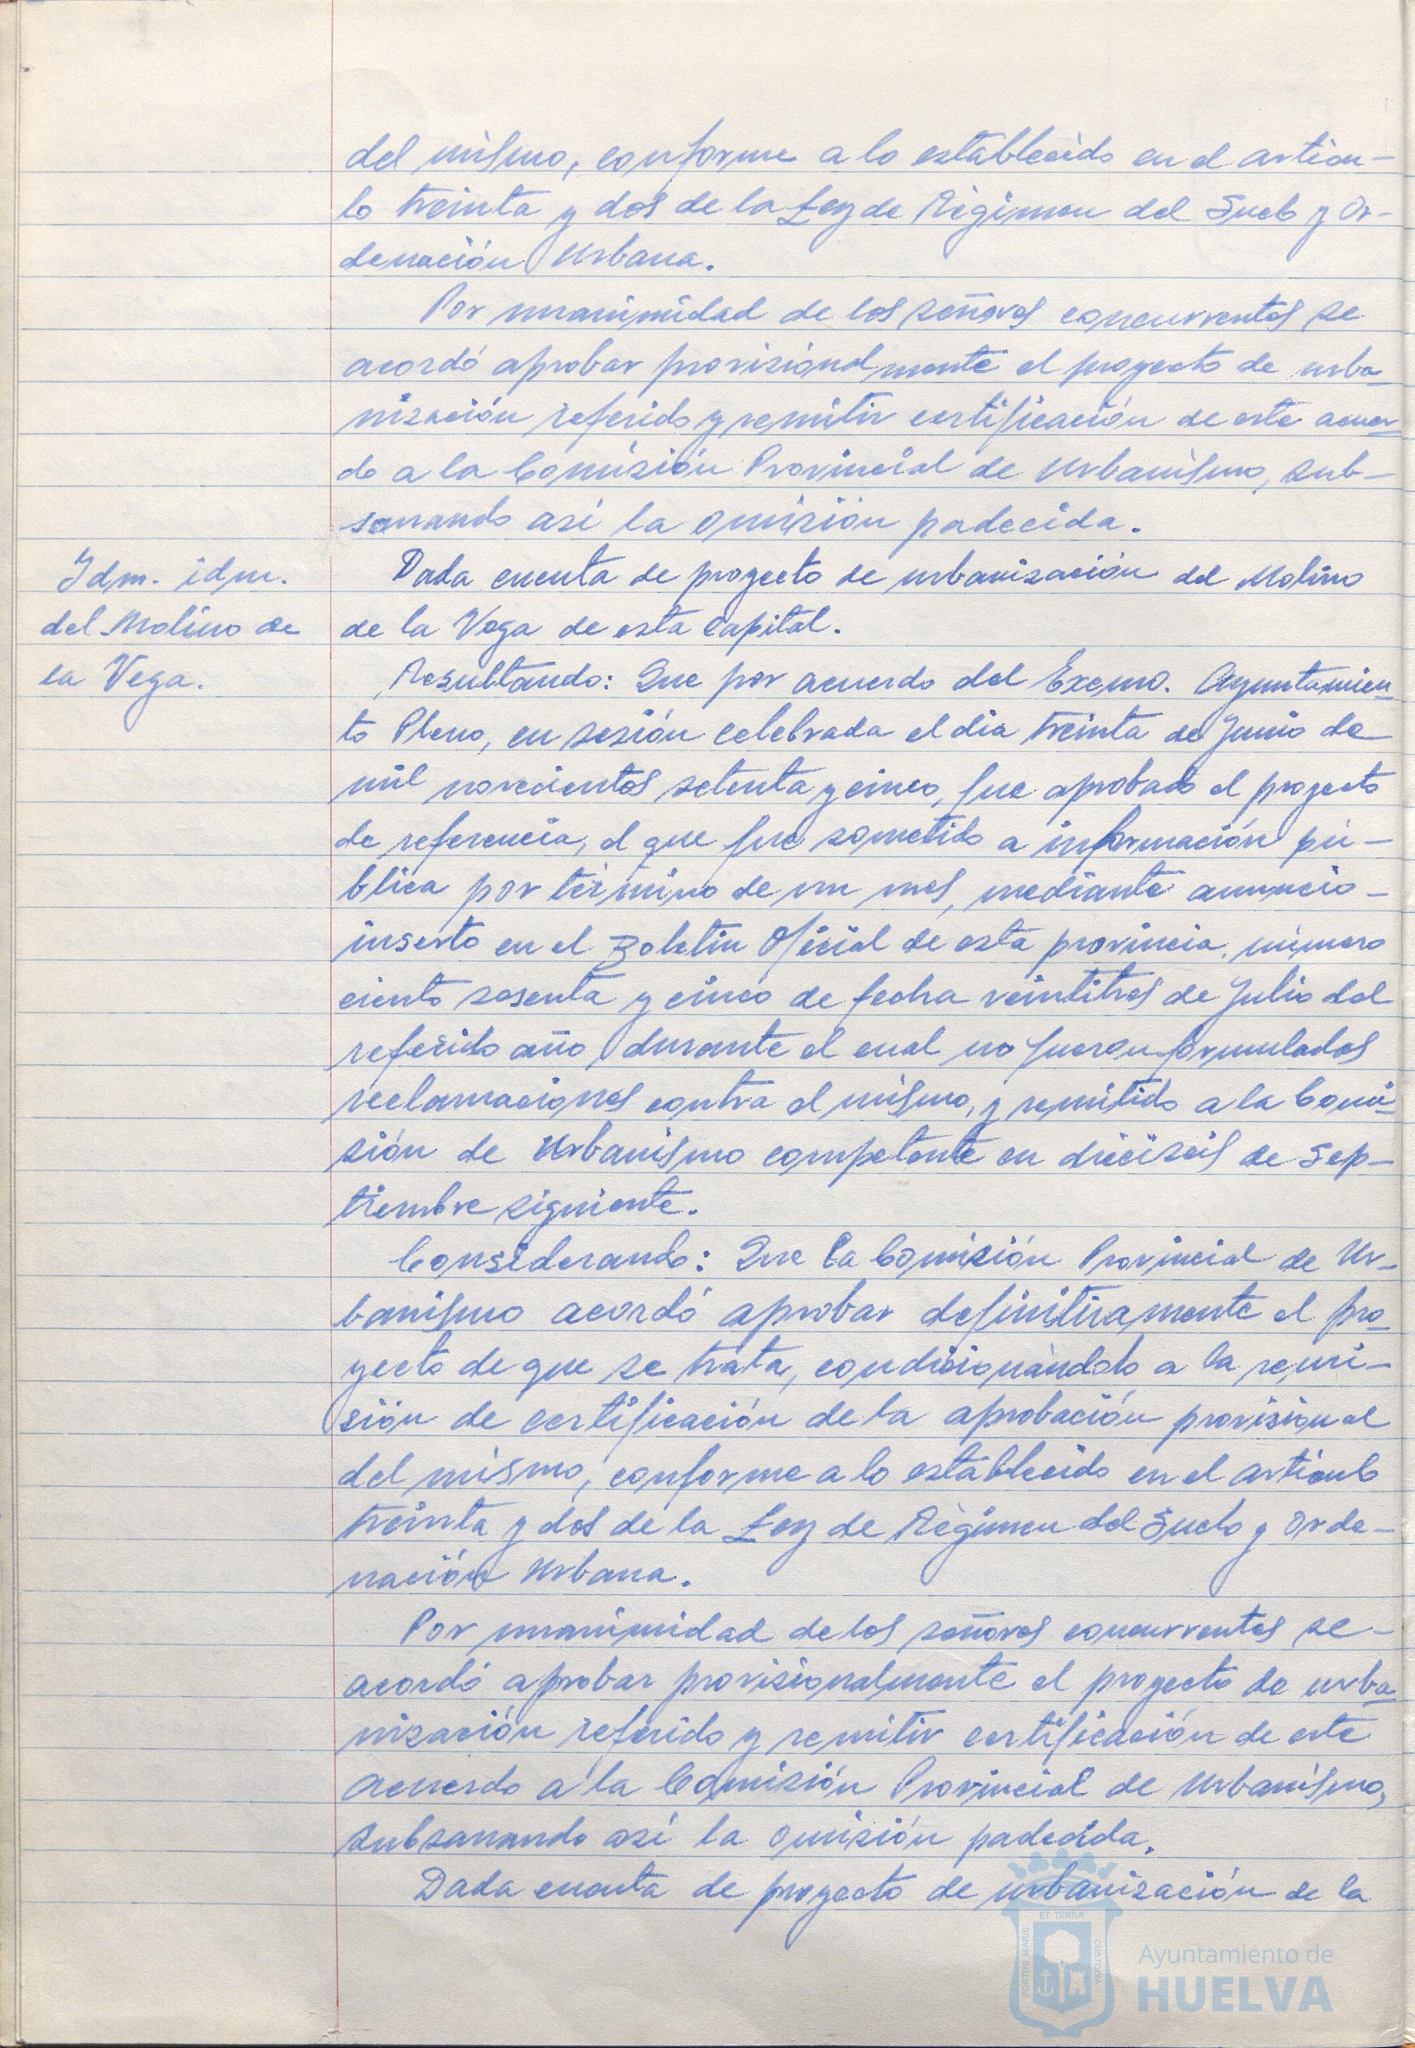 del mismo, conforme a lo establecido en el artícu-
lo treinta y dos de la Ley de Régimen del Suelo y Or-
denación Urbana.
Por unanimidad de los señores concurrentes se
acordó aprobar provisionalmente el proyecto de urba-
nización referido y remitir certificación de este acuer-
do a la Comisión Provincial de Urbanismo, sub-
sanando así la omisión padecida.
Idm. idm.
del Molino de
la Vega.
Dada cuenta de proyecto de urbanización del Molino
de la Vega de esta Capital.
Resultando: Que por acuerdo del Excmo. Ayuntamien-
to Pleno, en sesión celebrada el día treinta de Junio de
mil novecientos setenta y cinco, fue aprobado el proyecto
de referencia, el que fue sometido a información pú-
blica por término de un mes, mediante anuncio-
inserto en el Boletín Oficial de esta provincia, número
ciento sesenta y cinco de fecha veintitres de Julio del
referido año durante el cual no fueron formulados
reclamaciones contra el mismo, y remitido a la Comi-
sión de Urbanismo competente en dieciseis de Sep-
tiembre siguiente.
Considerando: Que la Comisión Provincial de Ur-
banismo acordó aprobar definitivamente el pro-
yecto de que se trata, condicionándolo a la remi-
sión de certificación de la aprobación provisional
del mismo, conforme a lo establecido en el artículo
treinta y dos de la Ley de Régimen del Suelo y Orde-
nación Urbana.
Por unanimidad de los señores concurrentes se-
acordó aprobar provisionalmente el proyecto de urba-
nización referido y remitir certificación de este
acuerdo a la Comisión Provincial de Urbanismo,
subsanando así la omisión padecida.
Dada cuenta de proyecto de urbanización de la
PORTUS MARIS
ET TERRÆ
CUSTODIA
Ayuntamiento de
HUELVA